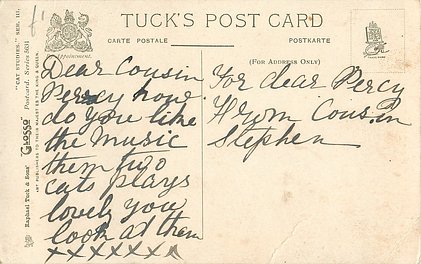 TUCK'S POST CARD
CARTE POSTALE
POSTKARTE
(FOR ADDRESS ONLY)
Dear Cousin
Percy how
do you like
the Music
them two
cats plays
lovely you
look at them
xxxxxxx
For dear Percy
From Cousin
Stephen
Raphael Tuck & Sons' "GLOSSO" Postcard. Series 8251
"CAT STUDIES." SER. III.
ART PUBLISHERS TO THEIR MAJESTIES THE KING & QUEEN